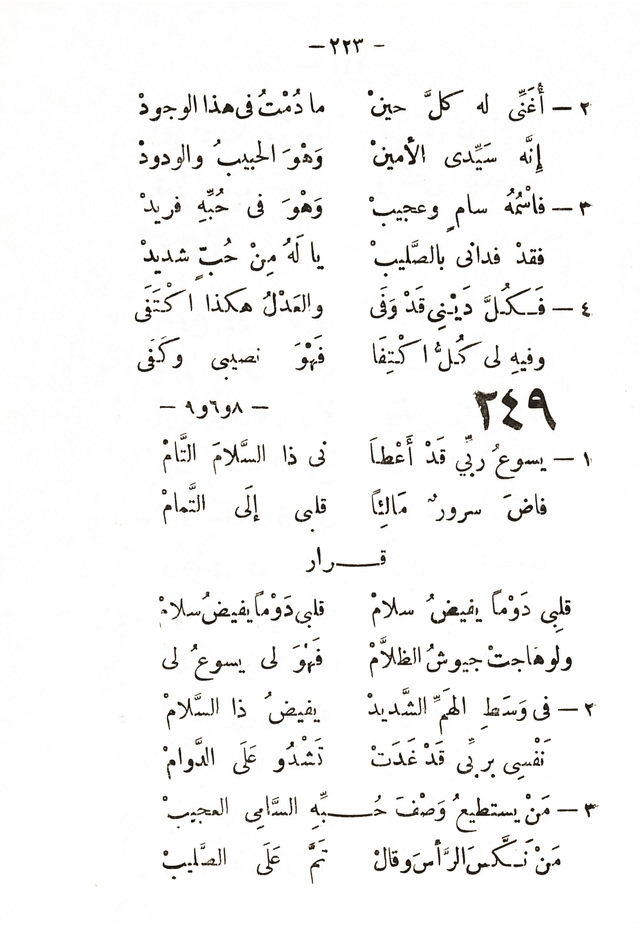 - ٢٢٣ -
٢ - أُغَنِّى له كلَّ حينْ ما دُمْتُ فى هذا الوجودْ
إِنَّه سَيِّدى الأمينْ وَهْوَ الحبيبُ والودودْ
٣ - فاسْمُهُ سامٍ وعجيبْ وَهْوَ فى حُبِّهِ فريدْ
فقدْ فدانى بالصَّليبْ يا لَهُ مِنْ حُبٍّ شديدْ
٤ - فَكُلَّ دَيْنِى قَدْ وَفَى والعَدْلُ هكذا اكْتَفَى
وفيهِ لى كُلُّ اكْتِفَا فَهْوَ نصيبى وكَفَى
٢٤٩ - ٨و٦و٩ -
١ - يسوعُ ربِّي قَدْ أَعْطَا نى ذا السَّلامَ التَّامْ
فاضَ سرورٌ مَالِئًا قلبى إلَى التَّمامْ
قـــرار
قلبِى دَوْماً يفيضُ سلامْ قلبى دَوْماً يفيضُ سلامْ
ولو هَاجتْ جيوشُ الظلاَّمْ فَهْوَ لى يسوعُ لى
٢ - فى وَسَطِ الهَمِّ الشَّديدْ يفيضُ ذا السَّلامْ
نَفْسِى بربِّى قَدْ غَدَتْ تَشْدُو عَلَى الدَّوامْ
٣ - مَنْ يستطيعُ وَصْفَ حُـــبِّهِ السَّامِى العجيبْ
مَنْ نَكَّسَ الرَّأسَ وقالْ تَمَّ عَلَى الصَّليبْ